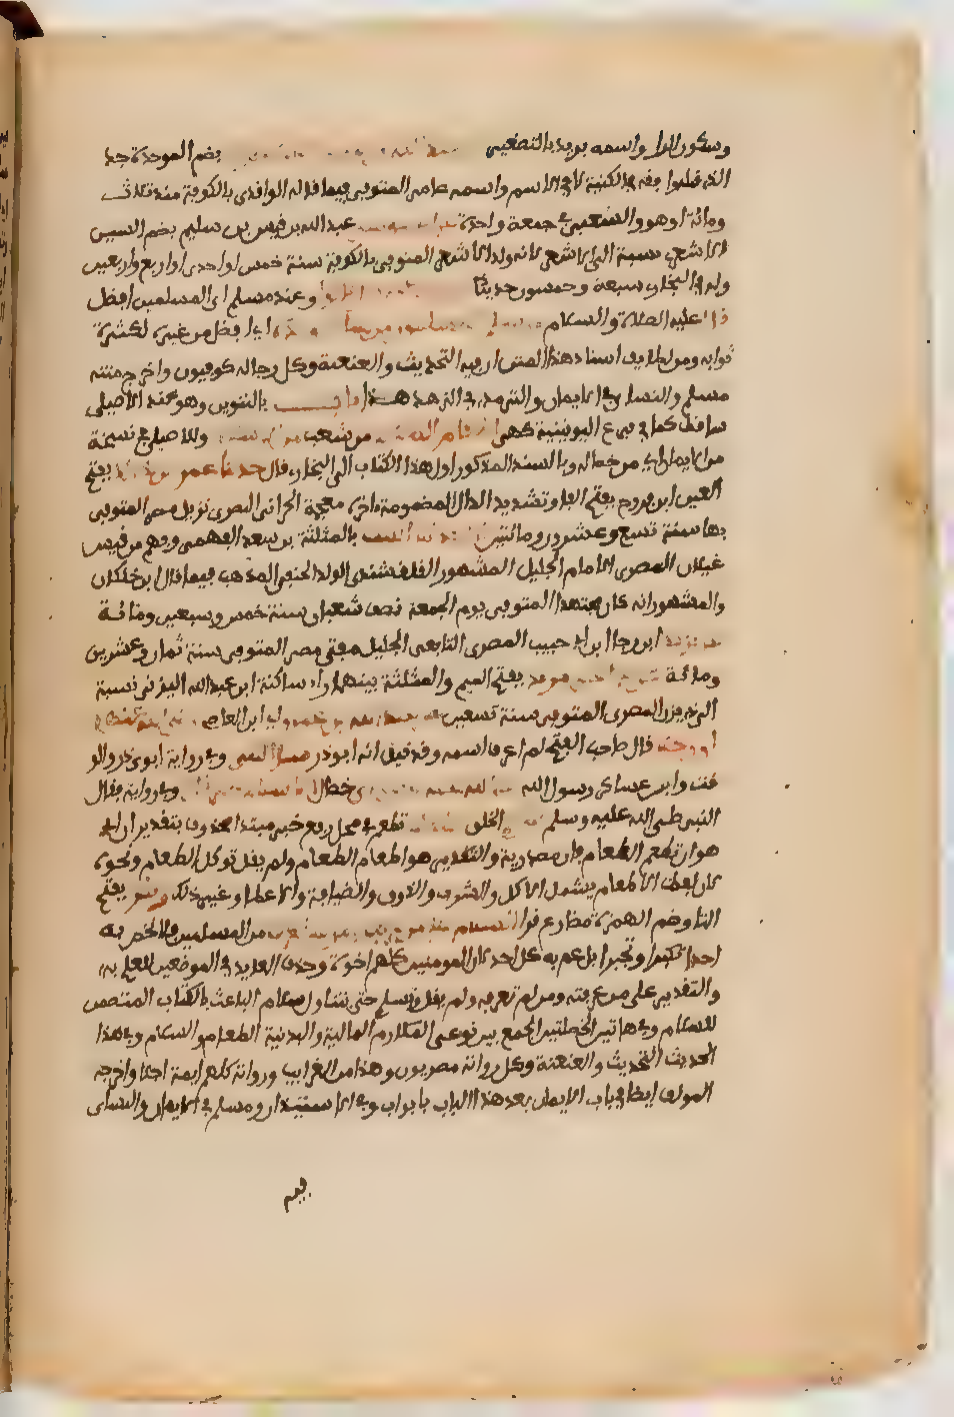 وسكون الراء واسمه بريد بالتصغير بضم الموحدة جد
الذي قبله وافقه في الكنية لا في الاسم واسمه عامر المتوفى فيما قاله الواقدي بالكوفة سنة ثلاث
ومائة او هو والشعبي في جمعة واحدة عبد الله بن قيس بن سليم بضم السين
الاشعري نسبة الى الاشعر لانه ولد اشعر المتوفى بالكوفة سنة خمس او احدى او اربع واربعين
وله في البخاري سبعة وخمسون حديثا وعند مسلم اي المسلمين افضل
قال عليه الصلاة والسلام من سلم المسلمون من لسانه ويده اي افضل من غيره لكثرة
ثوابه ومن لطايف اسناد هذا المتن ان فيه التحديث والعنعنة وكل رجاله كوفيون واخرج متنه
مسلم والنسائي في الايمان والترمذي في الزهد هذا باب بالتنوين وهو عند الاصيلي
ساقط كما في فرع اليونينية كهي اطعام الطعام من شعب وللاصيلي في نسخة
من الايمان اي من خصاله وبالسند المذكور اول هذا الكتاب الى البخاري قال حدثنا عمرو بن خالد بفتح
العين ابن فروخ بفتح الفاء وتشديد الراء المضمومة اخره معجمة الحراني البصري نزيل مصر المتوفى
بها سنة تسع وعشرين ومائتين بالمثلثة بن سعد الفهمي وفهم من قيس
غيلان المصري الامام الجليل المشهور القلقشندي الولد الحنفي المذهب فيما قال ابن خلكان
والمشهور انه كان مجتهدا المتوفى يوم الجمعة نصف شعبان سنة خمس وسبعين ومائة
عن يزيد ابن رجا ابي حبيب المصري التابعي الجليل مفتي مصر المتوفى سنة ثمان وعشرين
ومائة بفتح الميم والمثلثة بينهما راء ساكنة ابن عبد الله اليزني نسبة
الى ذي يزن المصري المتوفى سنة تسعين عن عبد الله بن عمرو اي ابن العاص
ان رجلا قال صاحب الفتح لم اعرف اسمه وقد قيل انه ابوذر سال النبي وفي رواية ابوي ذر والو
قت وابن عساكر رسول الله خصال وفي رواية فقال
النبي صلى الله عليه وسلم الخلق تطعم في محل رفع خبر مبتدا محذوف بتقدير ان اي
هو ان تطعم الطعام فان مصدرية والتقدير هو اطعام الطعام ولم يقل توكل الطعام ونحوه
لان لفظ الاطعام يشمل الاكل والشرب والذوق والضيافة والاعطاء وغير ذلك وتقرأ بفتح
التاء وضم الهمزة مضارع قرا السلام على من عرفت ومن لم تعرف من المسلمين فلا تخص به
احدا تكبرا وتجبرا بل عم به كل احد لان المومنين كلهم اخوة وحذف العائد في الموضعين للعلم به
والتقدير على من عرفته ومن لم تعرفه ولم يقل وتسلم حتى يتناول سلام الباعث بالكتاب المتضمن
للسلام وفي هاتين الخصلتين الجمع بين نوعي المكارم المالية والبدنية الطعام والسلام وفي هذا
الحديث التحديث والعنعنة وكل رواته مصريون وهذا من الغرايب ورواته كلهم ايمة اجلا واخرجه
المولف ايضا في باب الايمان بعد هذا الباب بابواب وفي الاستيذان ومسلم في الايمان والنسائي
فيه